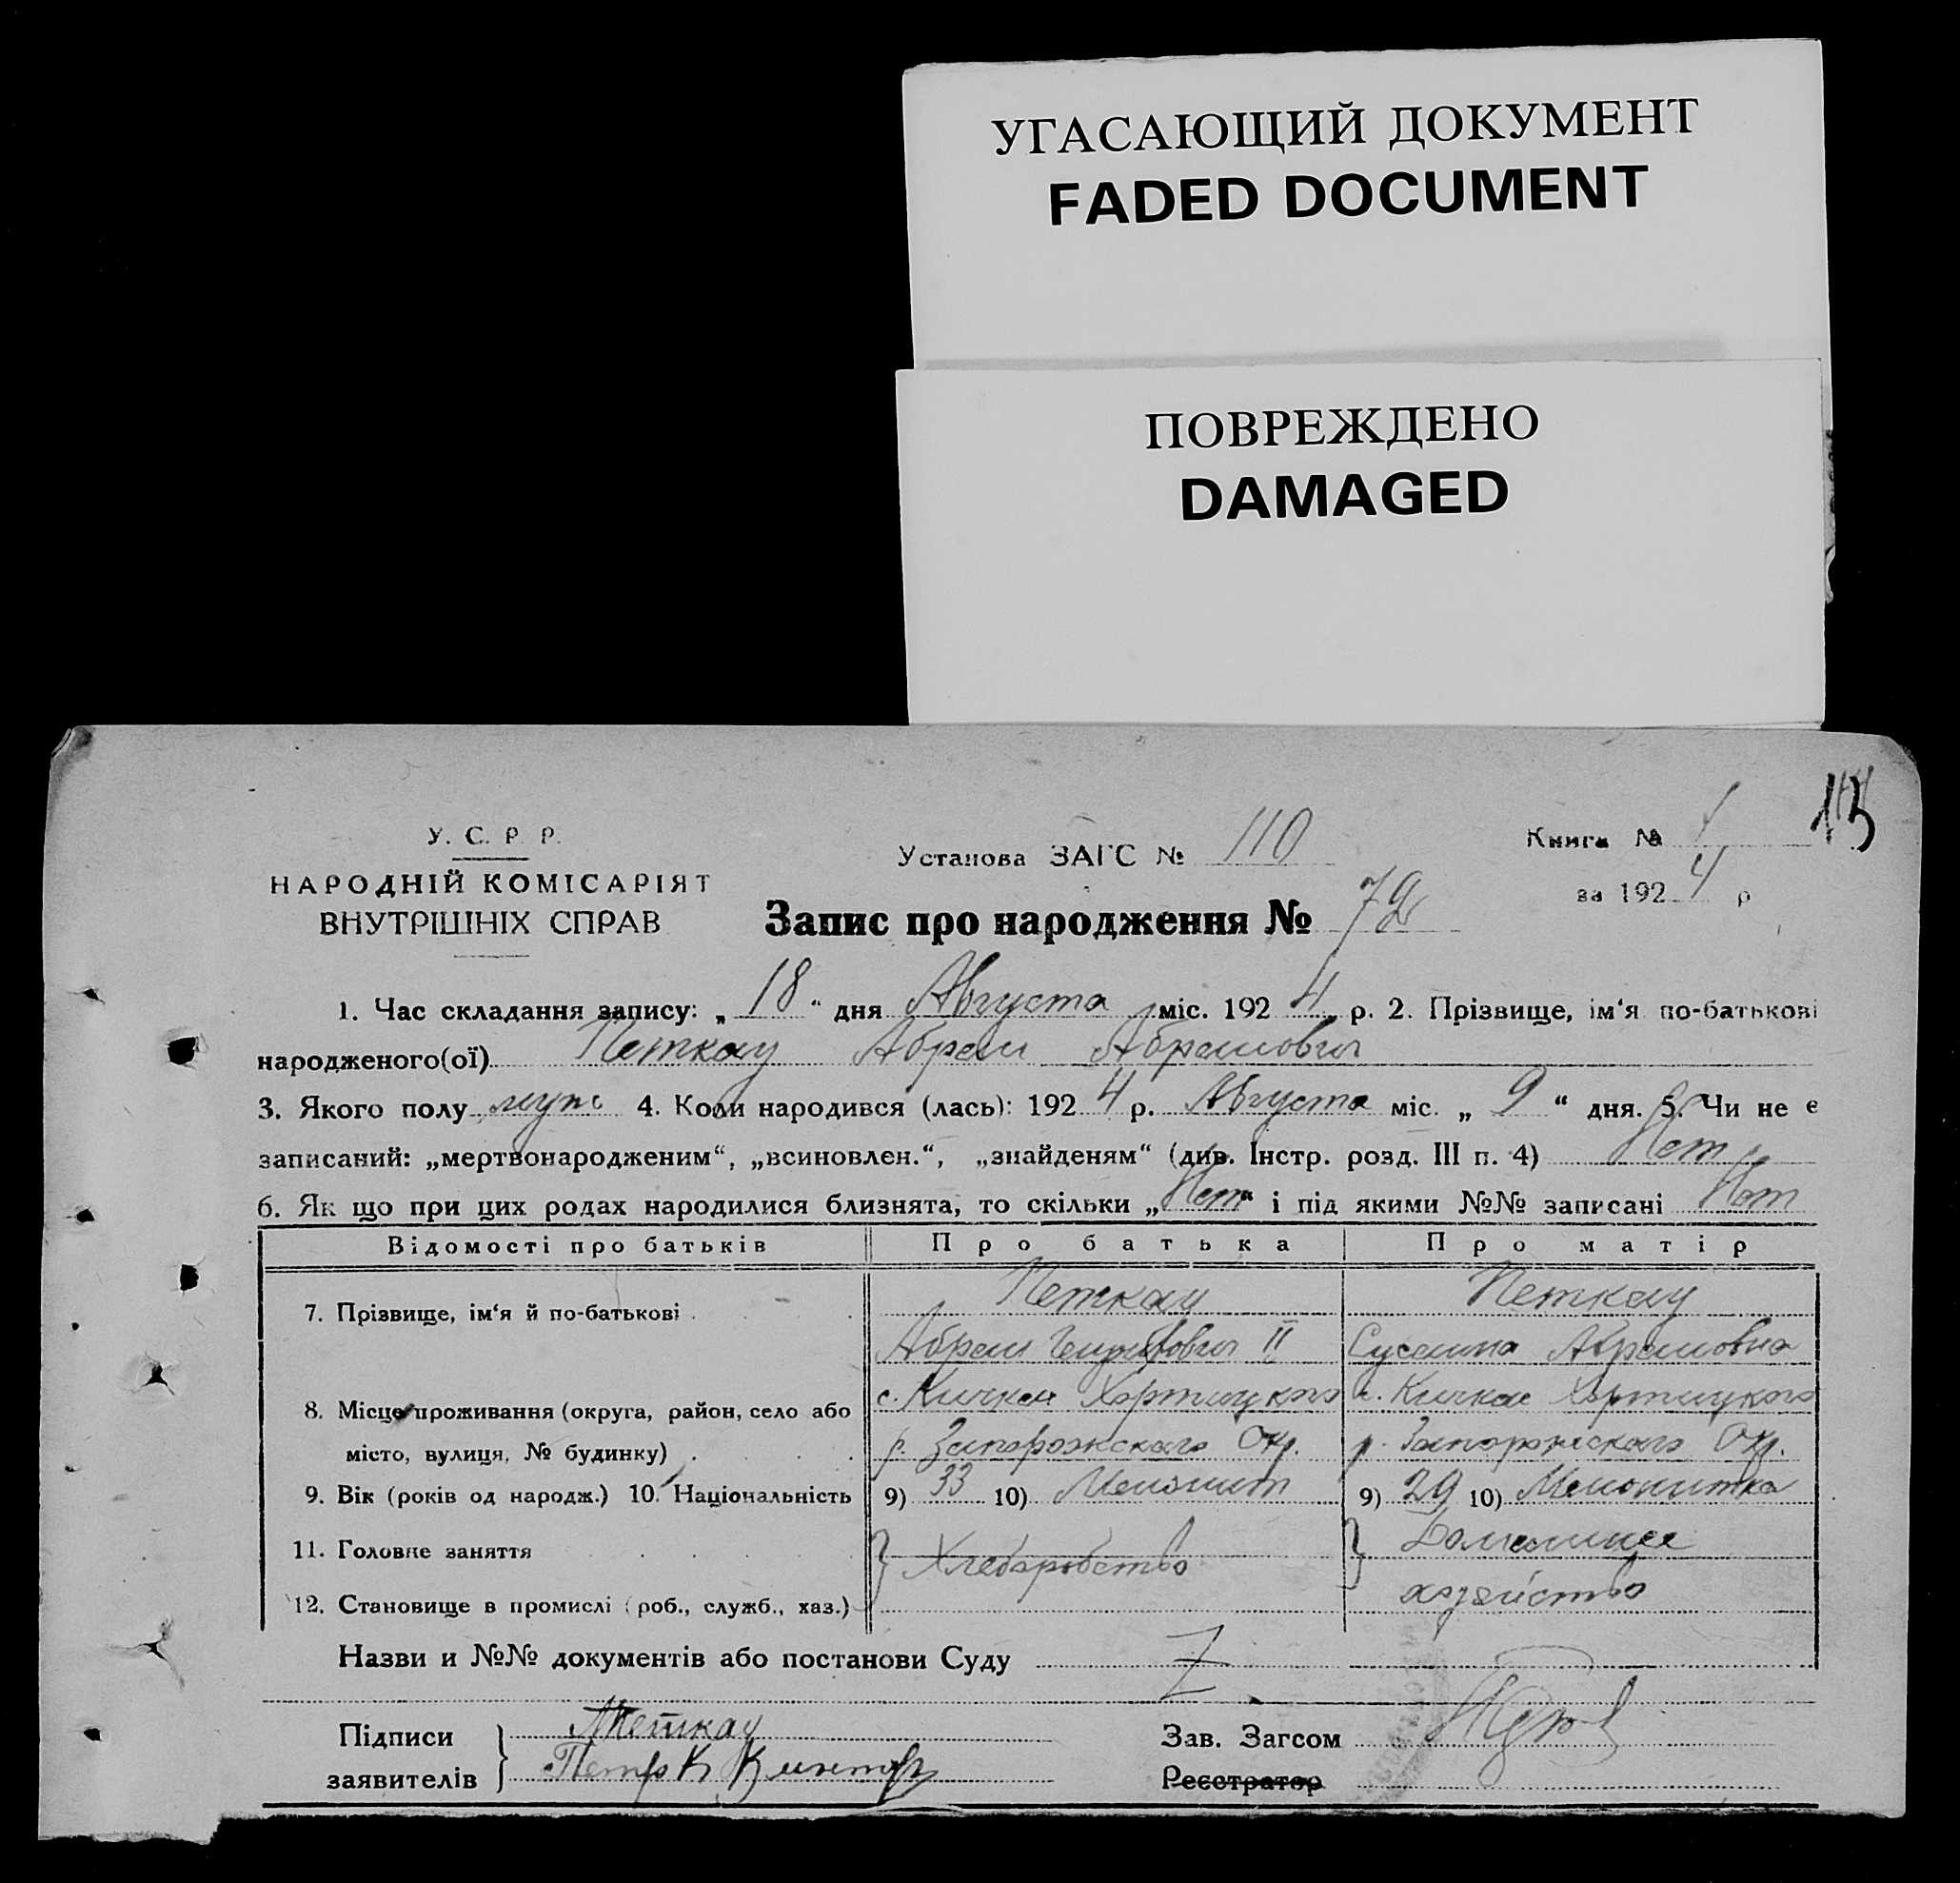 УГАСАЮЩИЙ ДОКУМЕНТ
FADED DOCUMENT
ПОВРЕЖДЕНО
DAMAGED
У. С. Р. Р.
НАРОДНІЙ КОМІСАРІЯТ
ВНУТРІШНІХ СПРАВ
Установа ЗАГС № 110
Книга № 1
за 1924 р
Запис про народження №
1. Час складання запису: „18“ дня Августа міс. 1924 р. 2. Прізвище, ім‘я по-батькові
народженого(ої) Петкау Абрам Абрамович
3. Якого полу муж 4. Коли народився (лась): 1924 р. Августа міс. „9“ дня. 5. Чи не є
записаний: „мертвонародженим“, „всиновлен.“, „знайденям“ (див. Інстр. розд. III п. 4) Нет
6. Як що при цих родах народилися близнята, то скільки „Нет“ і під якими №№ записані Нет
Відомості про батьків Про батька Про матір
7. Прізвище, ім‘я й по-батькові . Петкау Петкау
Абрам II Сусанна Абрамовна
8. Місце проживання (округа, район, село або с. Кичкас Хортицкого с. Кичкас Хортицкого
місто, вулиця, № будинку) . р. Запорожскаго Окр. р. Запорожскаго Окр.
9. Вік (років од народж.) 10. Національність 9) 33 10) Менонит 9) 29 10) Менонитка
11. Головне заняття Хлеборобство Домашнее
12. Становище в промислі (роб., служб., хаз.) хозяйство
Назви и №№ документів або постанови Суду Z
Підписи Петкау
Зав. Загсом
заявителів Петр К
Реєстратор